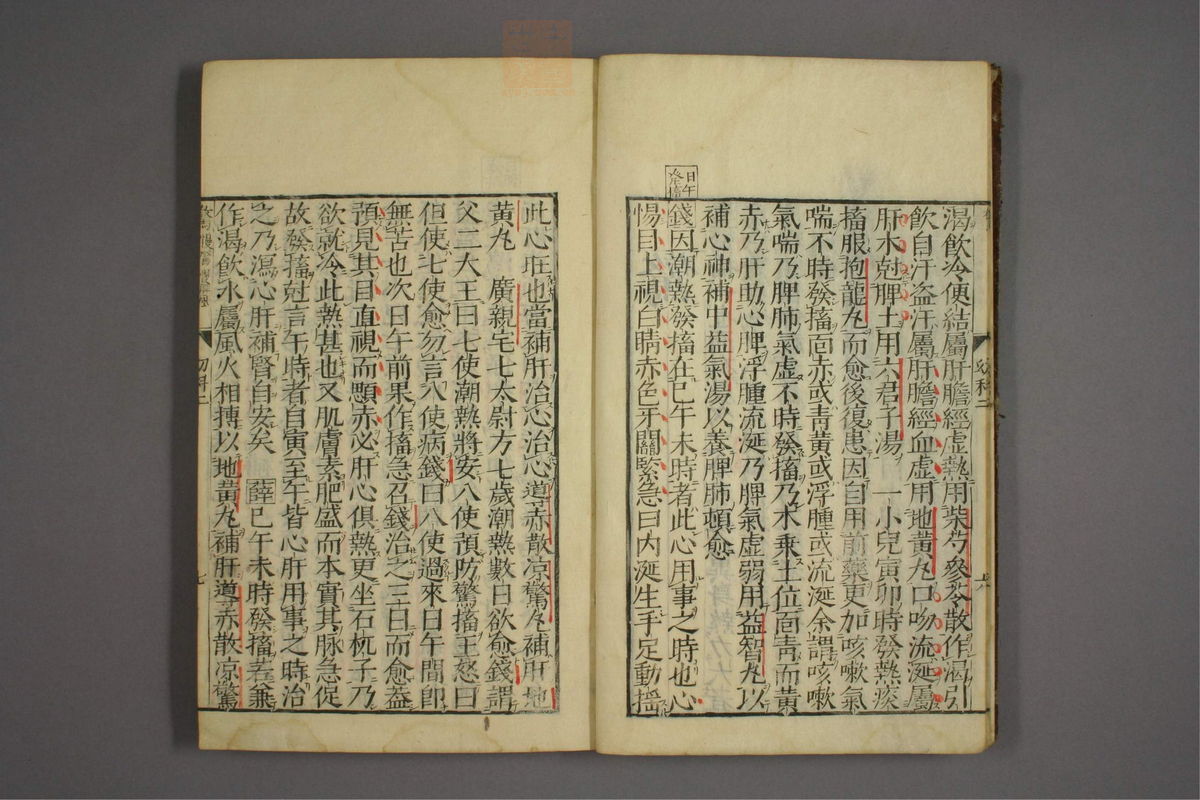 渴飲冷便結屬肝膽經虛熱用柴芍參苓散作渴引
飲自汗盜汗屬肝膽經血虛用地黃丸口吻流涎屬
肝木尅脾土用六君子湯　一小兒寅卯時發熱痰
搐服抱龍丸而愈後復患因自用前藥更加咳嗽氣
喘不時發搐面赤或青黃或浮腫或流涎余謂咳嗽
氣喘乃脾肺氣虛不時發搐乃木乘土位面青而黃
赤乃肝助心脾浮腫流涎乃脾氣虛弱用益智丸以
補心神補中益氣湯以養脾肺頓愈
日午發搐
錢因潮熱發搐在巳午未時者此心用事之時也心
惕目上視白睛赤色牙關緊急口內涎生手足動搖
幼科二
六
此心旺也當補肝治心治心導赤散凉驚丸補肝地
黃丸　廣親宅七太尉方七歲潮熱數日欲愈錢謂
父二大王曰七使潮熱將安八使預防驚搐王怒曰
但使七使愈勿言八使病錢曰八使過來日午間即
無苦也次日午前果作搐急召錢治之三日而愈蓋
預見其目直視而顋赤必肝心俱熱更坐石杌子乃
欲就冷此熱甚也又肌膚素肥盛而本實其脉急促
故發搐尅言午時者自寅至午皆心肝用事之時治
之乃瀉心肝補腎自安矣　薛巳午未時發搐若兼
作渴飲水屬風火相搏以地黃丸補肝導赤散凉驚
幼科二
七